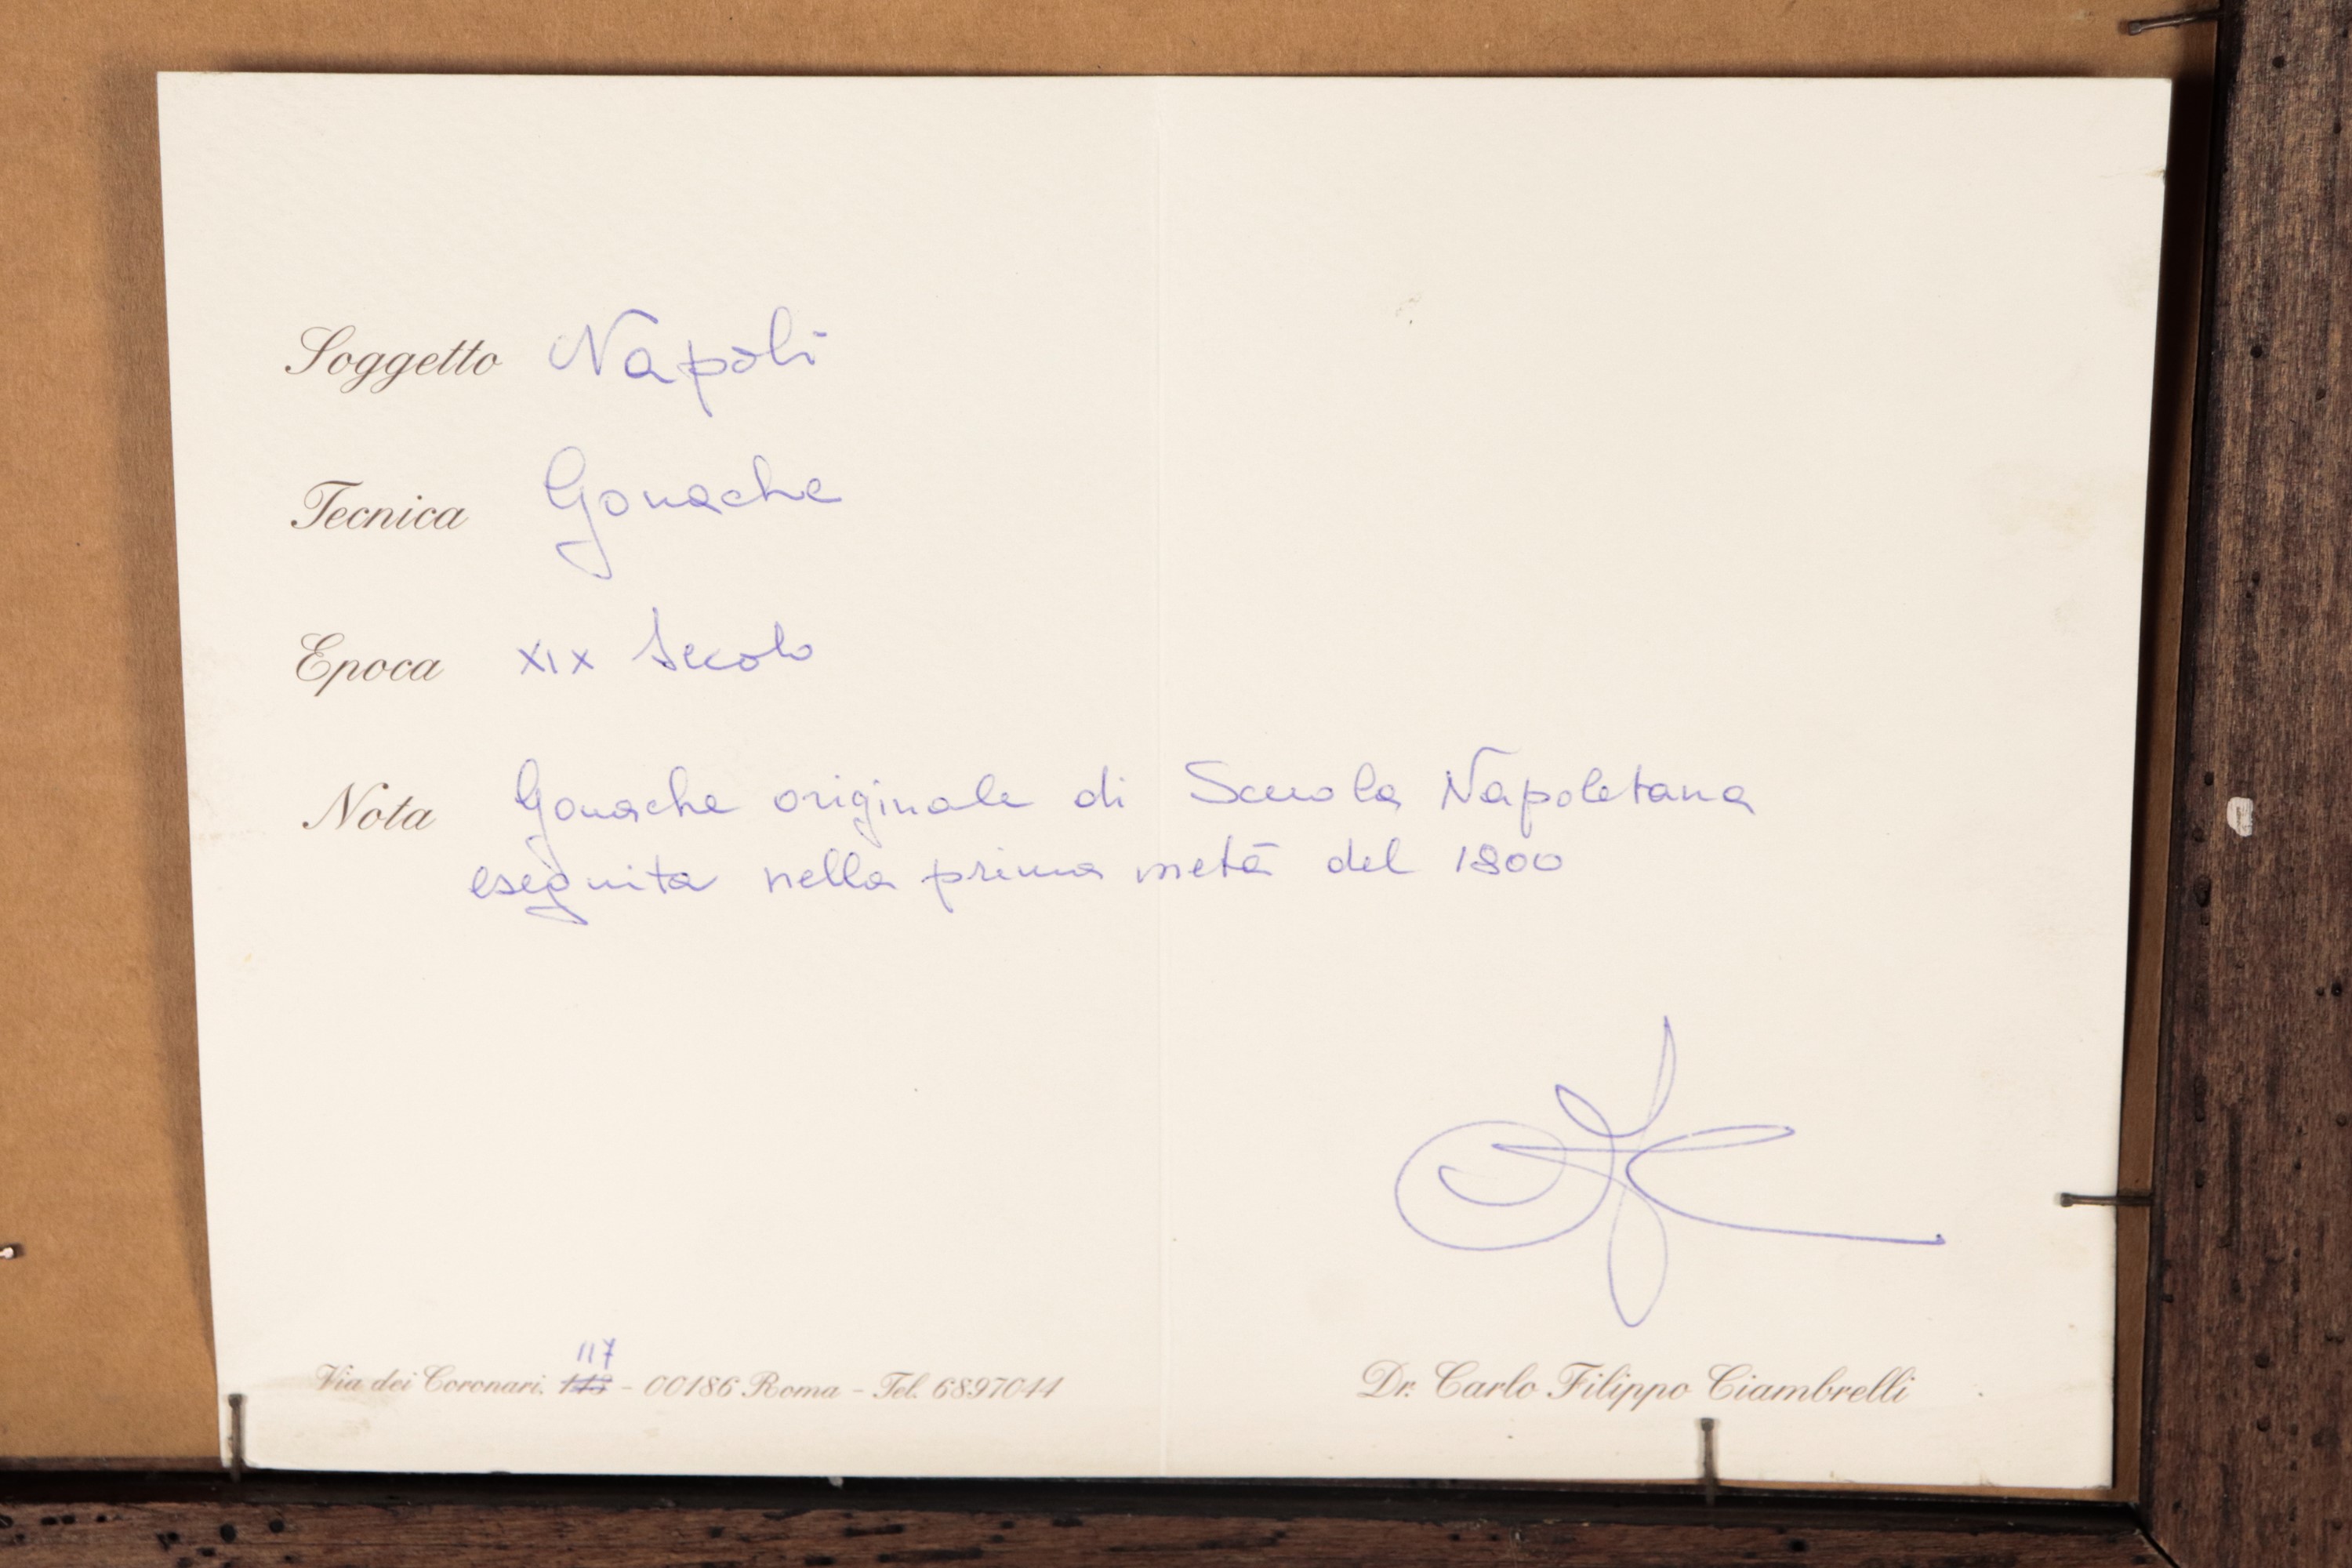 Soggetto Napoli
Tecnica Gouache
Epoca XIX Secolo
Nota Gouache originale di Scuola Napoletana
eseguita nella prima metà del 1800
117
Via dei Coronari, - 00186 Roma - Tel. 6897044
Dr. Carlo Filippo Ciambrelli